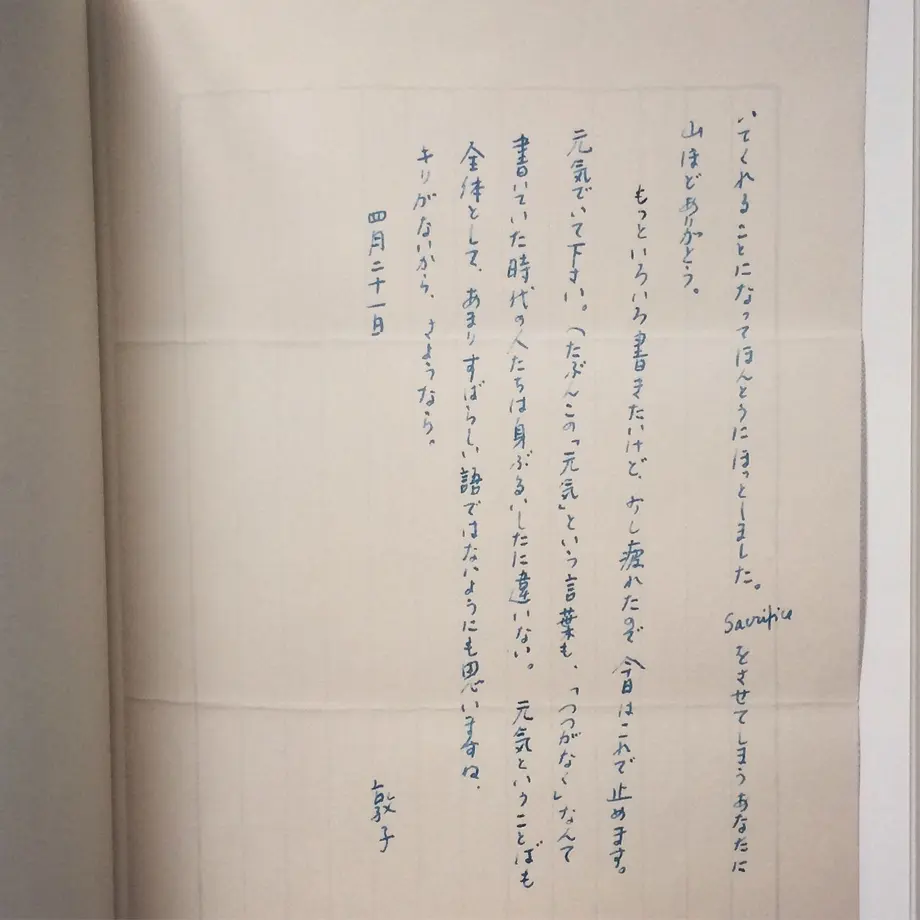 いてくれることになってほんとうにほっとしました。 Sacrifice をさせてしまうあなたに
山ほどありがとう。
もっといろいろ書きたいけど、少し疲れたので今日はこれで止めます。
元気でいて下さい。（たぶんこの「元気」という言葉も、「つつがなく」なんて
書いていた時代の人たちは身ぶるいしたに違いない。 元気ということばも
全体として、あまりすばらしい語ではないようにも思いますね、
キリがないから、さようなら。
四月二十一日
敦子